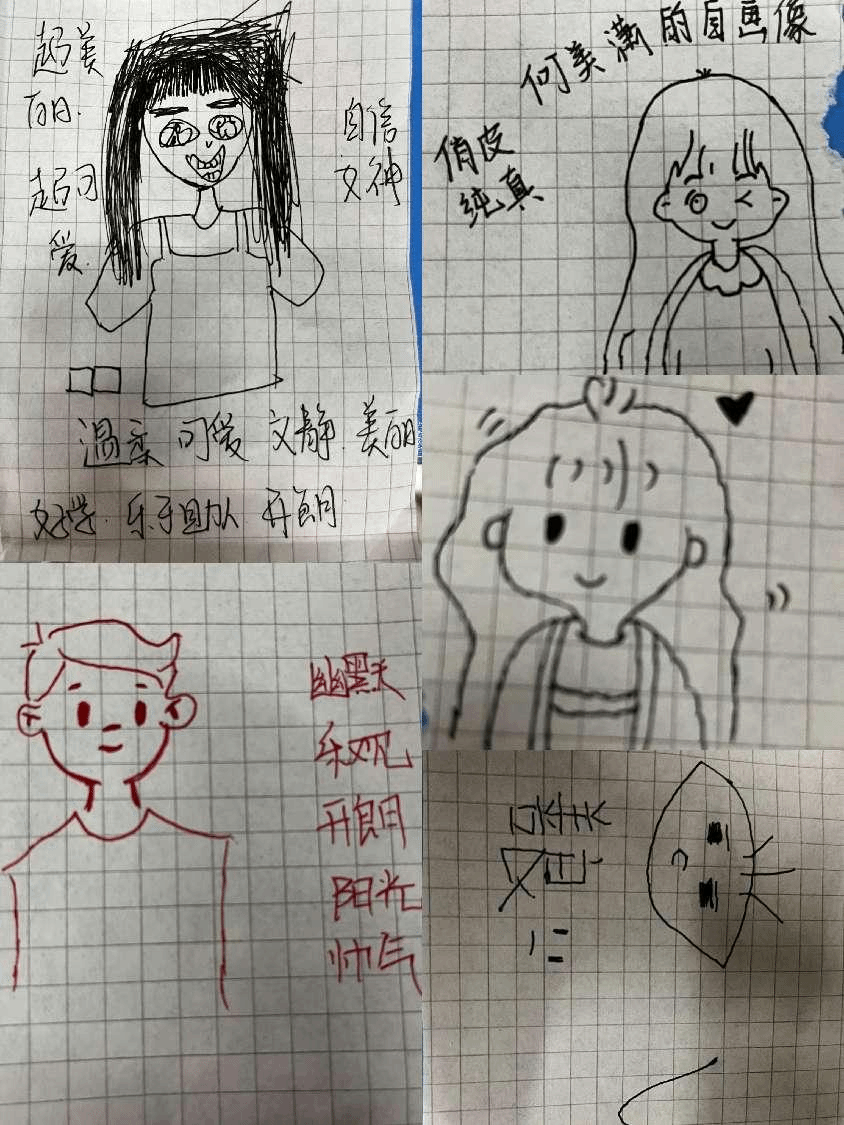 超美
丽.
超可
爱.
自信
女神
温柔 可爱 文静 美丽
好学. 乐于助人 开朗
何美潇的自画像
俏皮
纯真
幽默
乐观
开朗
阳光
帅气